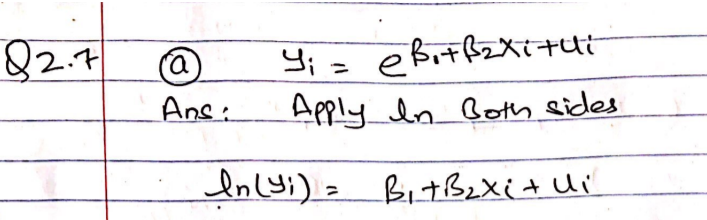 Q2.7 ⓐ yᵢ = e^{β₁+β₂Xᵢ+uᵢ}
Ans: Apply ln Both sides
ln(yᵢ) = β₁+β₂Xᵢ+uᵢ